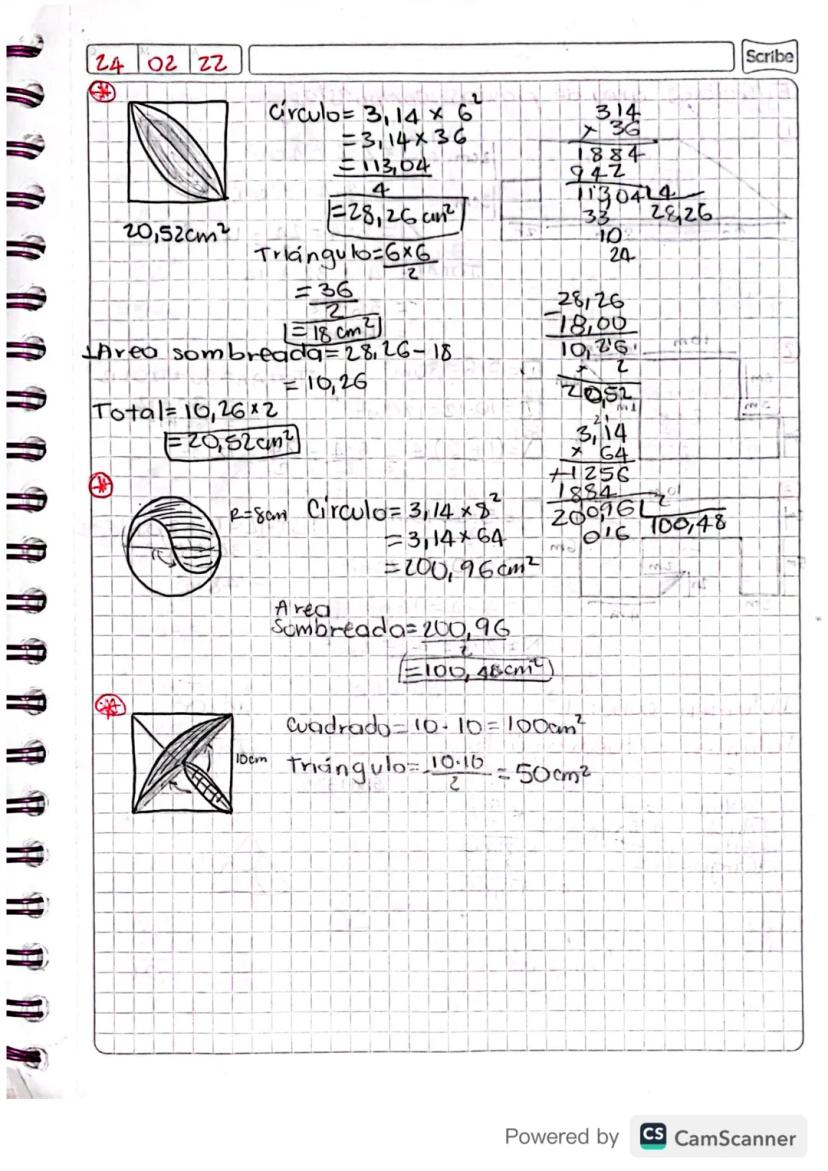 24 02 22
Scribe
Círculo = 3,14 × 6²
= 3,14 × 36
= 113,04
4
= 28,26 cm²
20,52cm²
Triángulo = 6×6
2
= 36
2
= 18 cm²
Area sombreada = 28,26 - 18
= 10,26
Total = 10,26 × 2
= 20,52cm²
314
× 36
1884
942
11304 4
33 28,26
10
24
28,26
-18,00
10,26
× 2
20,52
21
3,14
× 64
+1256
1884
200,96 2
016 100,48
R=8cm Círculo = 3,14 × 8²
= 3,14 × 64
= 200,96 cm²
Area
Sombreada = 200,96
2
= 100,48cm²
10cm
Cuadrado = 10 · 10 = 100cm²
Triángulo = 10·10 = 50cm²
2
Powered by CS CamScanner